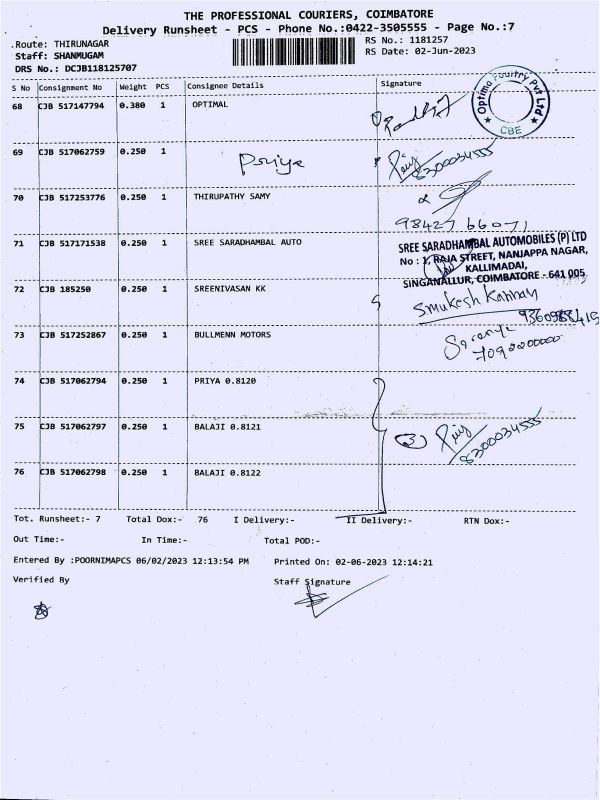 THE PROFESSIONAL COURIERS, COIMBATORE
Delivery Runsheet - PCS - Phone No.:0422-3505555 - Page No.:7
Route: THIRUNAGAR
RS No.: 1181257
Staff: SHANMUGAM
RS Date: 02-Jun-2023
DRS No.: DCJB118125707
S No Consignment No Weight PCS Consignee Details Signature
68 CJB 517147794 0.380 1 OPTIMAL
Optima Poultry Pvt Ltd
CBE
69 CJB 517062759 0.250 1
Priya
8300034555
70 CJB 517253776 0.250 1 THIRUPATHY SAMY
98427 66071
71 CJB 517171538 0.250 1 SREE SARADHAMBAL AUTO
SREE SARADHAMBAL AUTOMOBILES (P) LTD
No : 1, RAJA STREET, NANJAPPA NAGAR,
KALLIMADAI,
SINGANALLUR, COIMBATORE - 641 005
72 CJB 185250 0.250 1 SREENIVASAN KK
Smukesh Kannan
73 CJB 517252867 0.250 1 BULLMENN MOTORS
Saranya
74 CJB 517062794 0.250 1 PRIYA 0.8120
75 CJB 517062797 0.250 1 BALAJI 0.8121
(3)
8300034555
76 CJB 517062798 0.250 1 BALAJI 0.8122
Tot. Runsheet:- 7 Total Dox:- 76 I Delivery:- II Delivery:- RTN Dox:-
Out Time:- In Time:- Total POD:-
Entered By :POORNIMAPCS 06/02/2023 12:13:54 PM Printed On: 02-06-2023 12:14:21
Verified By Staff Signature